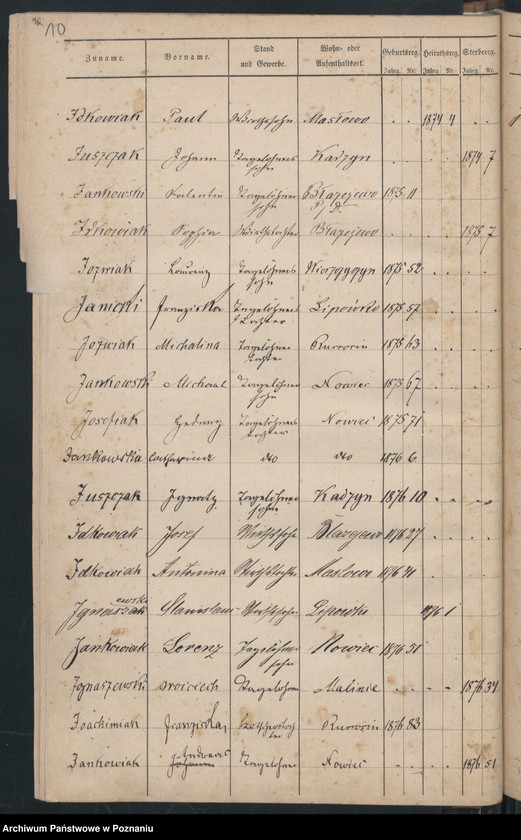 10
Zuname. Vorname. Stand und Gewerbe. Wohn- oder Aufenthaltsort. Geburtsreg. Heirathsreg. Sterbereg.
Jahrg. Nr. Jahrg. Nr. Jahrg. Nr.
Idkowiak Paul Wirthssohn Masłowo . . 1874 4
Juszczak Johann Tagelöhners sohn Kadzyn . . 1874 7
Jankowski Valentin Tagelöhners sohn Błazejewo 1875 11
Idkowiak Sophia Wirthstochter Błazejewo . . 1875 7
Jozwiak Lourenz Tagelöhners sohn 1875 52
Janicki Franziska Tagelöhners Tochter Lipowko 1875 57
Jozwiak Michalina Tagelöhner Tochter 1875 63
Jankowski Michael Tagelöhner sohn Nowiec 1875 67
Josefiak Hedwig Tagelöhners Tochter Nowiec 1875 71
Jankowska Catharina dto dto 1876 6
Juszczak Ignatz Tagelöhner sohn Kadzyn 1876 10
Idkowiak Josef Wirthssohn Blazejewo 1876 27
Idkowiak Antonina Wirthstochter Maslowo 1876 41
ewski
Ignaszak Stanislaus Wirthssohn Lipowka 1876 1
Jankowiak Lorenz Tagelöhner sohn Nowiec 1876 51
Ignaszewski Woiciech Tagelöhner Malinie 1876 34
Joachimiak Franziska 1876 83
Andreas
Jankowiak Johann Tagelöhner Nowiec 1876 51
Archiwum Państwowe w Poznaniu